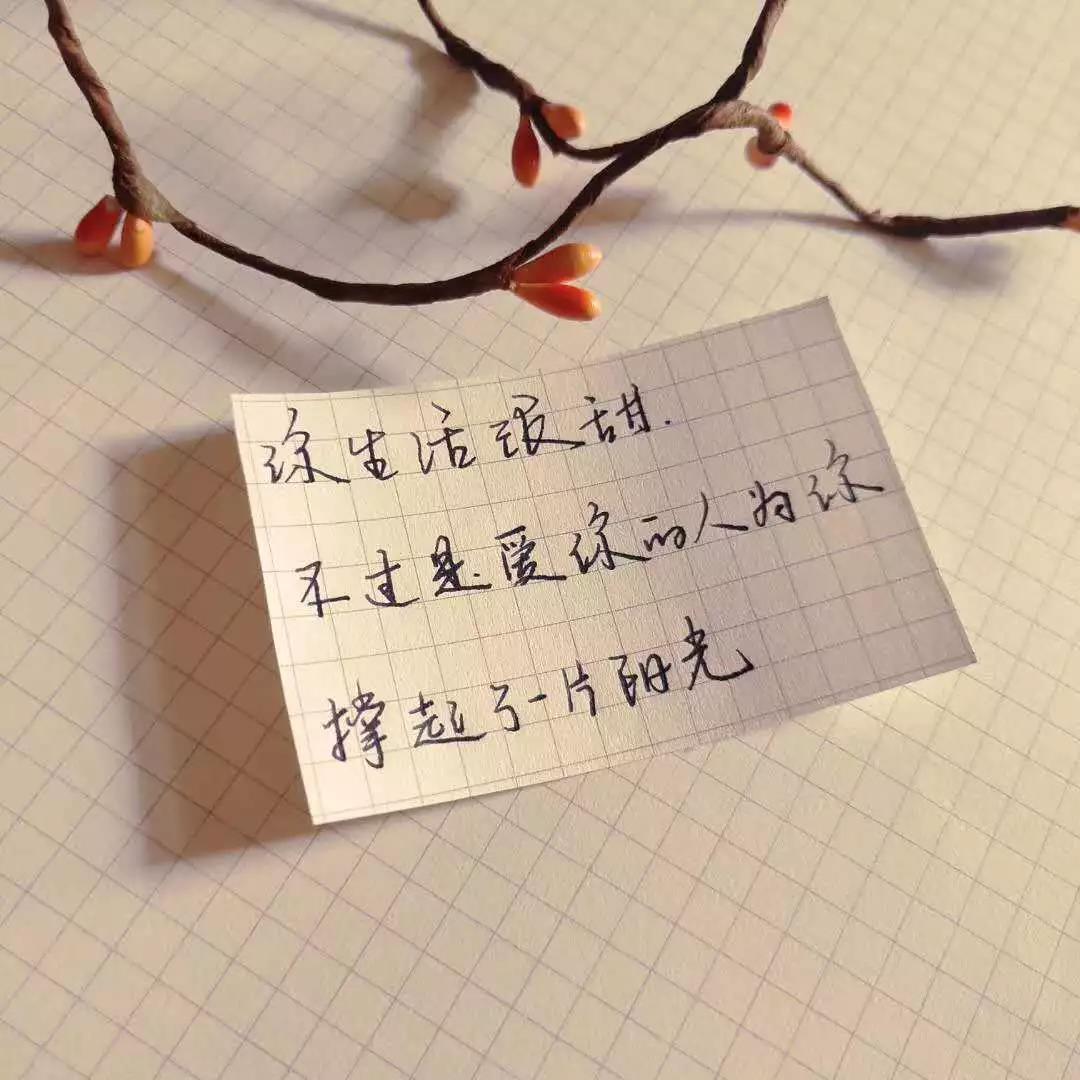 你生活很甜.
不过是爱你的人为你
撑起了一片阳光